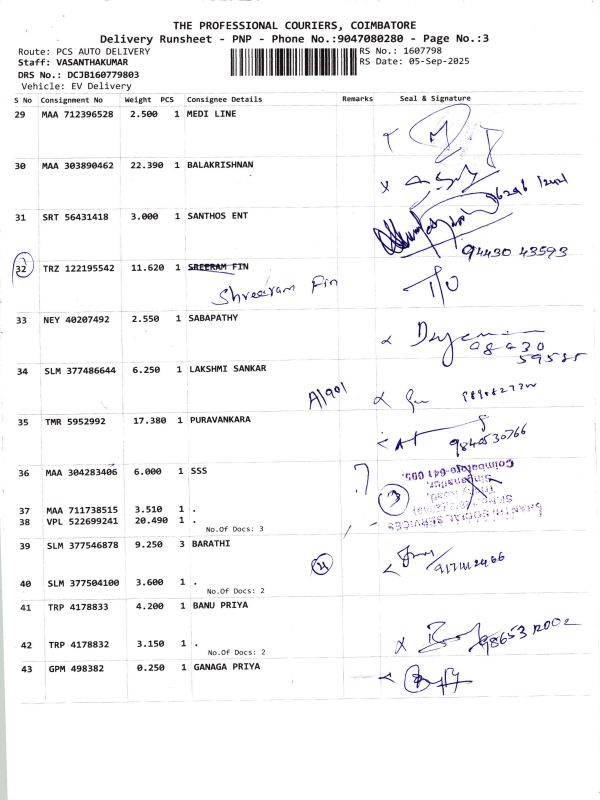 THE PROFESSIONAL COURIERS, COIMBATORE
Delivery Runsheet - PNP - Phone No.:9047080280 - Page No.:3
Route: PCS AUTO DELIVERY RS No.: 1607798
Staff: VASANTHAKUMAR RS Date: 05-Sep-2025
DRS No.: DCJB160779803
Vehicle: EV Delivery
S No Consignment No Weight PCS Consignee Details Remarks Seal & Signature
29 MAA 712396528 2.500 1 MEDI LINE
30 MAA 303890462 22.390 1 BALAKRISHNAN
31 SRT 56431418 3.000 1 SANTHOS ENT
94430 43593
32 TRZ 122195542 11.620 1 SREERAM FIN
Shreeram Fin
33 NEY 40207492 2.550 1 SABAPATHY
34 SLM 377486644 6.250 1 LAKSHMI SANKAR
A1901
35 TMR 5952992 17.380 1 PURAVANKARA
9840530766
36 MAA 304283406 6.000 1 SSS
?
3
SHANTHI SOCIAL SERVICES
Singanallur,
Coimbatore-641 005.
37 MAA 711738515 3.510 1 .
38 VPL 522699241 20.490 1 .
No.Of Docs: 3
39 SLM 377546878 9.250 3 BARATHI
4
40 SLM 377504100 3.600 1 .
No.Of Docs: 2
41 TRP 4178833 4.200 1 BANU PRIYA
42 TRP 4178832 3.150 1 .
No.Of Docs: 2
43 GPM 498382 0.250 1 GANAGA PRIYA